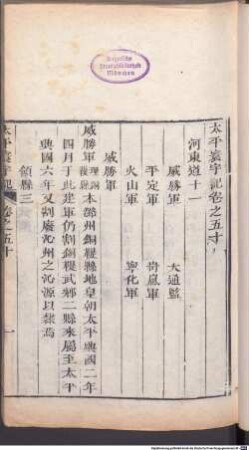 太平寰宇記卷之五十
河東道十一
威勝軍 大通監
平定軍 岢嵐軍
火山軍 寧化軍
威勝軍
威勝軍理銅鞮縣本潞州銅鞮縣地皇朝太平興國二年
四月于此建軍仍割銅鞮武鄉二縣來屬至太平
興國六年又割廢沁州之沁源以隸焉
領縣三
太平寰宇記 卷之五十 一
Bayerische
Staatsbibliothek
München